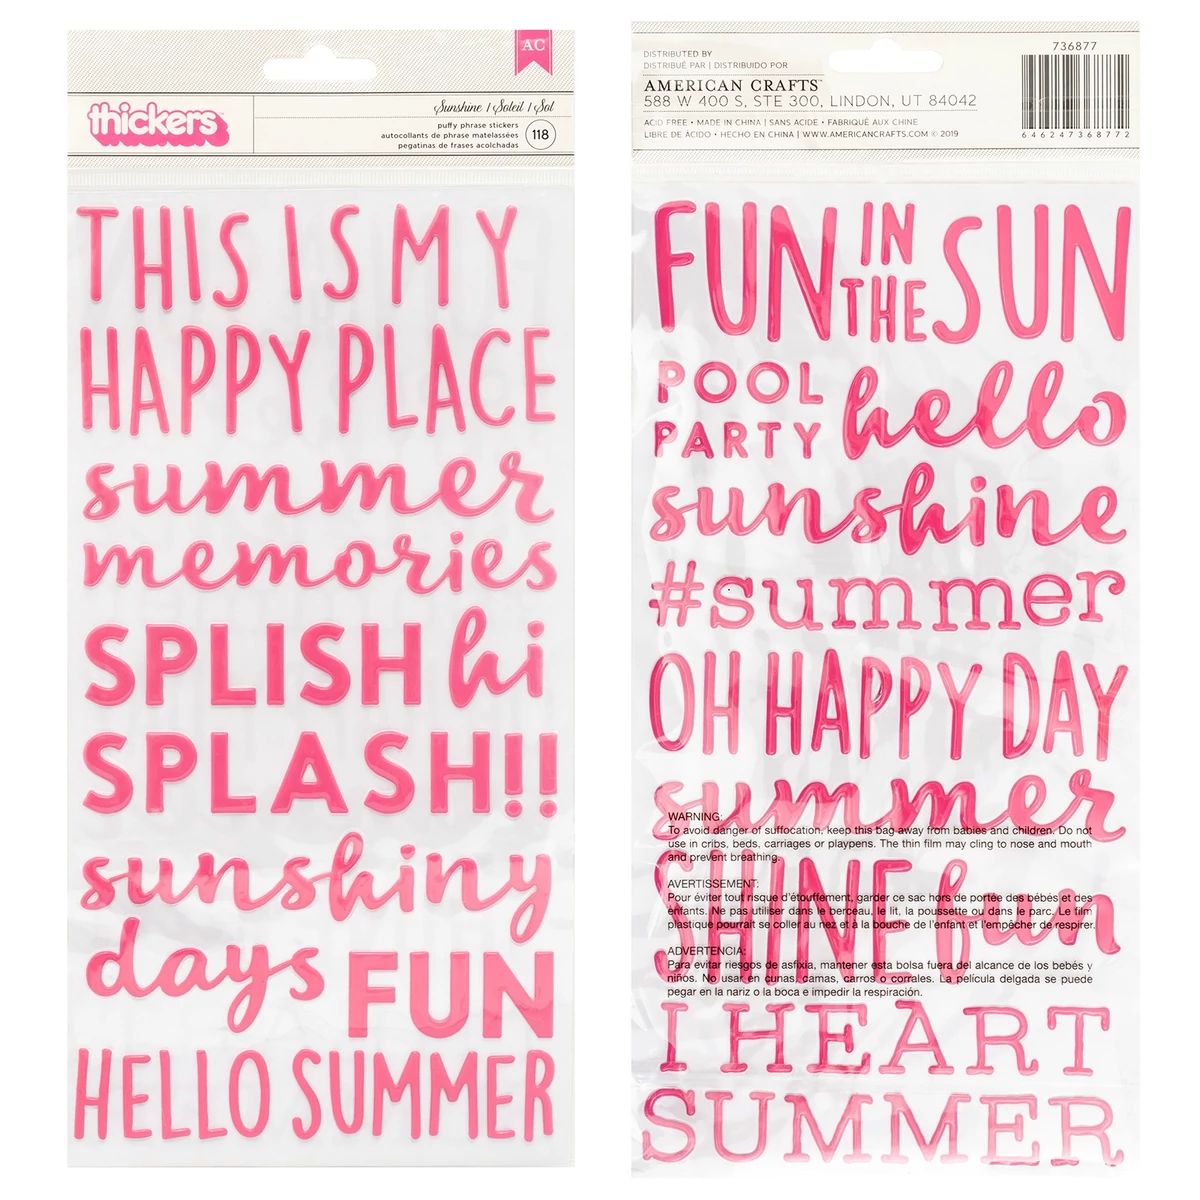 AC
thickers
Sunshine / Soleil / Sol
puffy phrase stickers
autocollants de phrase matelassées
pegatinas de frases acolchadas
118
THIS IS MY
HAPPY PLACE
summer
memories
SPLISH hi
SPLASH!!
sunshiny
days FUN
HELLO SUMMER
DISTRIBUTED BY
DISTRIBUÉ PAR | DISTRIBUIDO POR
AMERICAN CRAFTS™
588 W 400 S, STE 300, LINDON, UT 84042
ACID FREE • MADE IN CHINA | SANS ACIDE • FABRIQUÉ AUX CHINE
LIBRE DE ÁCIDO • HECHO EN CHINA | WWW.AMERICANCRAFTS.COM © 2019
736877
6 46247 36877 2
FUN IN THE SUN
POOL
PARTY hello
sunshine
#summer
OH HAPPY DAY
summer
WARNING:
To avoid danger of suffocation, keep this bag away from babies and children. Do not
use in cribs, beds, carriages or playpens. The thin film may cling to nose and mouth
and prevent breathing.
SHINE fun
AVERTISSEMENT:
Pour éviter tout risque d'étouffement, garder ce sac hors de portée des bébés et des
enfants. Ne pas utiliser dans le berceau, le lit, la poussette ou dans le parc. Le film
plastique pourrait se coller au nez et à la bouche de l'enfant et l'empêcher de respirer.
ADVERTENCIA:
Para evitar riesgos de asfixia, mantener esta bolsa fuera del alcance de los bebés y
niños. No usar en cunas, camas, carros o corrales. La película delgada se puede
pegar en la nariz o la boca e impedir la respiración.
I HEART
SUMMER